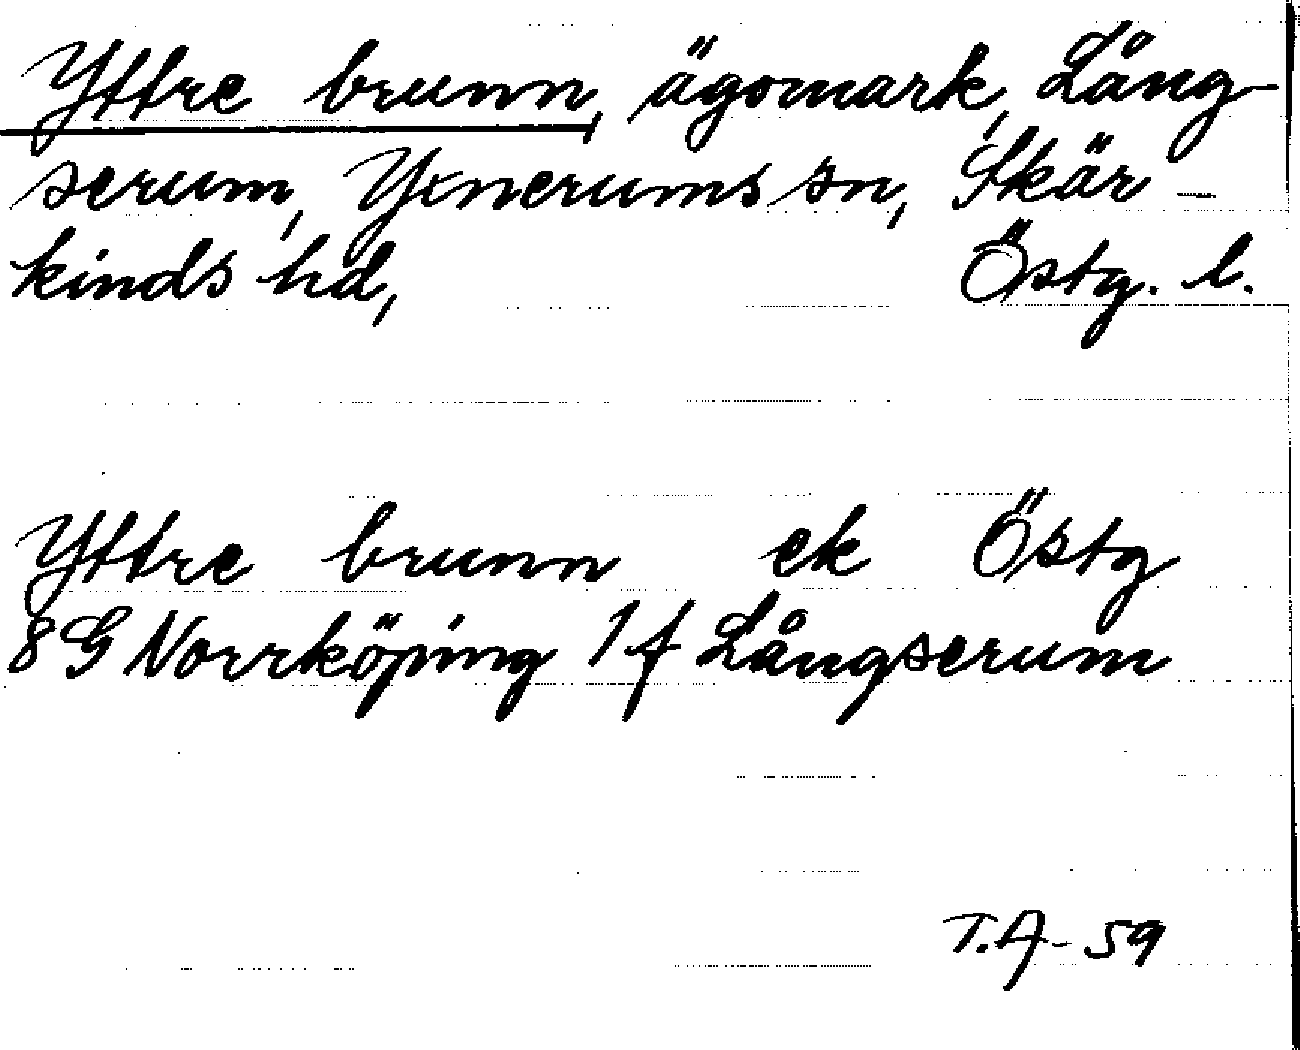 Yttre brunn, ägomark, Lång-
serum, Yxnerums sn, Skär-
kinds hd, Östg. l.
Yttre brunn ek Östg
8 G Norrköping 1 f Långserum
T.A-59